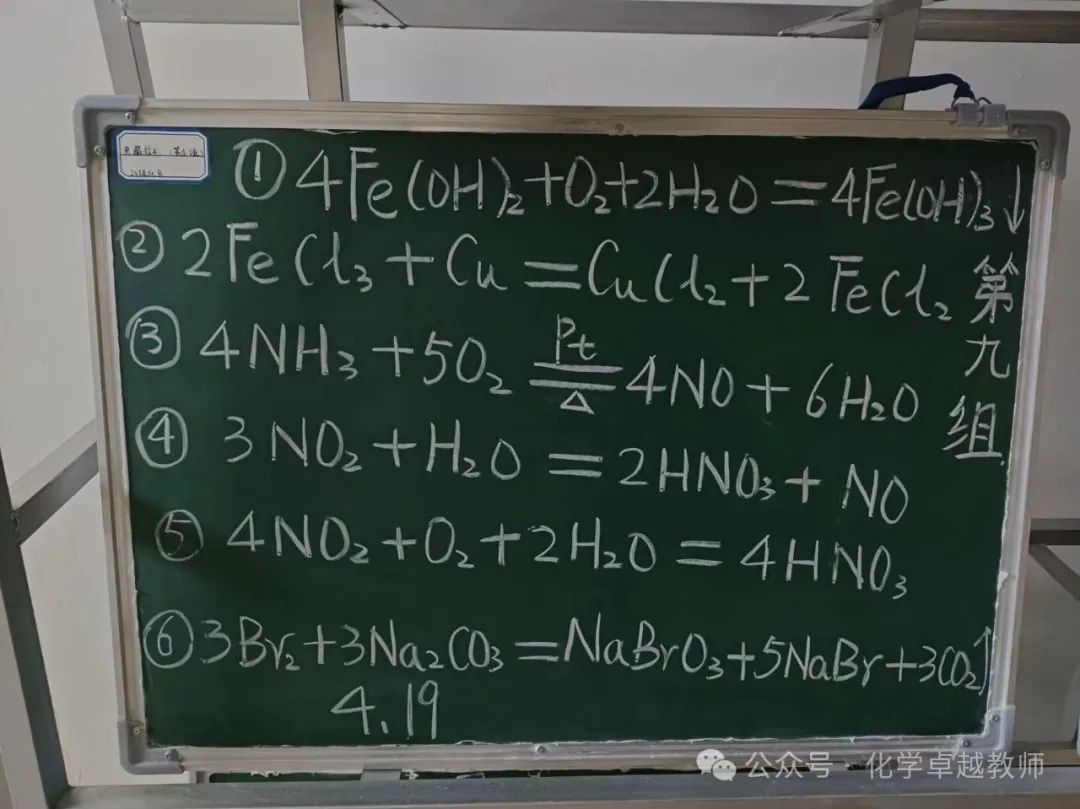 ①4Fe(OH)₂+O₂+2H₂O=4Fe(OH)₃↓
②2FeCl₃+Cu=CuCl₂+2FeCl₂
③4NH₃+5O₂ Pt═△ 4NO+6H₂O
④3NO₂+H₂O=2HNO₃+NO
⑤4NO₂+O₂+2H₂O=4HNO₃
⑥3Br₂+3Na₂CO₃=NaBrO₃+5NaBr+3CO₂↑
4.19
第九组
公众号·化学卓越教师